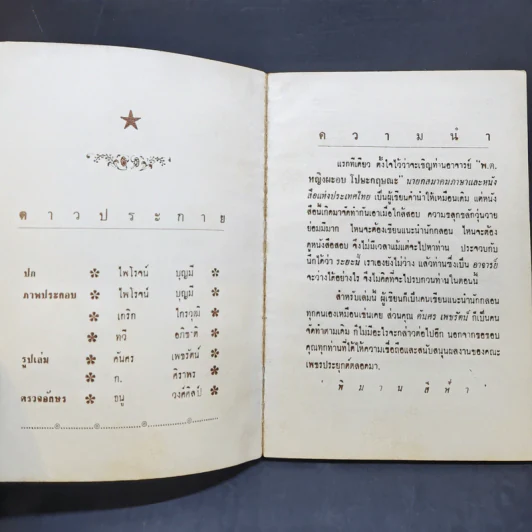 ดาวประกาย
ปก ไพโรจน์ บุญมี
ภาพประกอบ ไพโรจน์ บุญมี
เกริก ไกรวุฒิ
ทวี อภิชาติ
รูปเล่ม คันศร เพชรัตน์
ก. ศิราพร
ตรวจอักษร ธนู วงศ์ศิลป์
ความนำ
แรกทีเดียว ตั้งใจไว้ว่าจะเชิญท่านอาจารย์ "พ.ต.
หญิงผะอบ โปษะกฤษณะ" นายกสมาคมภาษาและหนัง
สือแห่งประเทศไทย เป็นผู้เขียนคำนำให้เหมือนเดิม แต่หนัง
สือนี้เกิดมาจัดทำกันเอาเมื่อใกล้สอบ ความขลุกขลักวุ่นวาย
ย่อมมีมาก ไหนจะต้องเขียนแนะนำนักกลอน ไหนจะต้อง
ดูหนังสือสอบ จึงไม่มีเวลาแม้แต่จะไปหาท่าน ประจวบกับ
นึกได้ว่า ระยะนี้ เราเองยังไม่ว่าง แล้วท่านซึ่งเป็น อาจารย์
จะว่างได้อย่างไร จึงไม่คิดที่จะไปรบกวนท่านในตอนนี้
สำหรับเล่มนี้ ผู้เขียนก็เป็นคนเขียนแนะนำนักกลอน
ทุกคนเองเหมือนเช่นเคย ส่วนคุณ คันศร เพชรัตน์ ก็เป็นคน
จัดทำตามเดิม ก็ไม่มีอะไรจะกล่าวต่อไปอีก นอกจากขอขอบ
คุณทุกท่านที่ได้ให้ความเชื่อถือและสนับสนุนผลงานของคณะ
เพชรประยุกต์ตลอดมา.